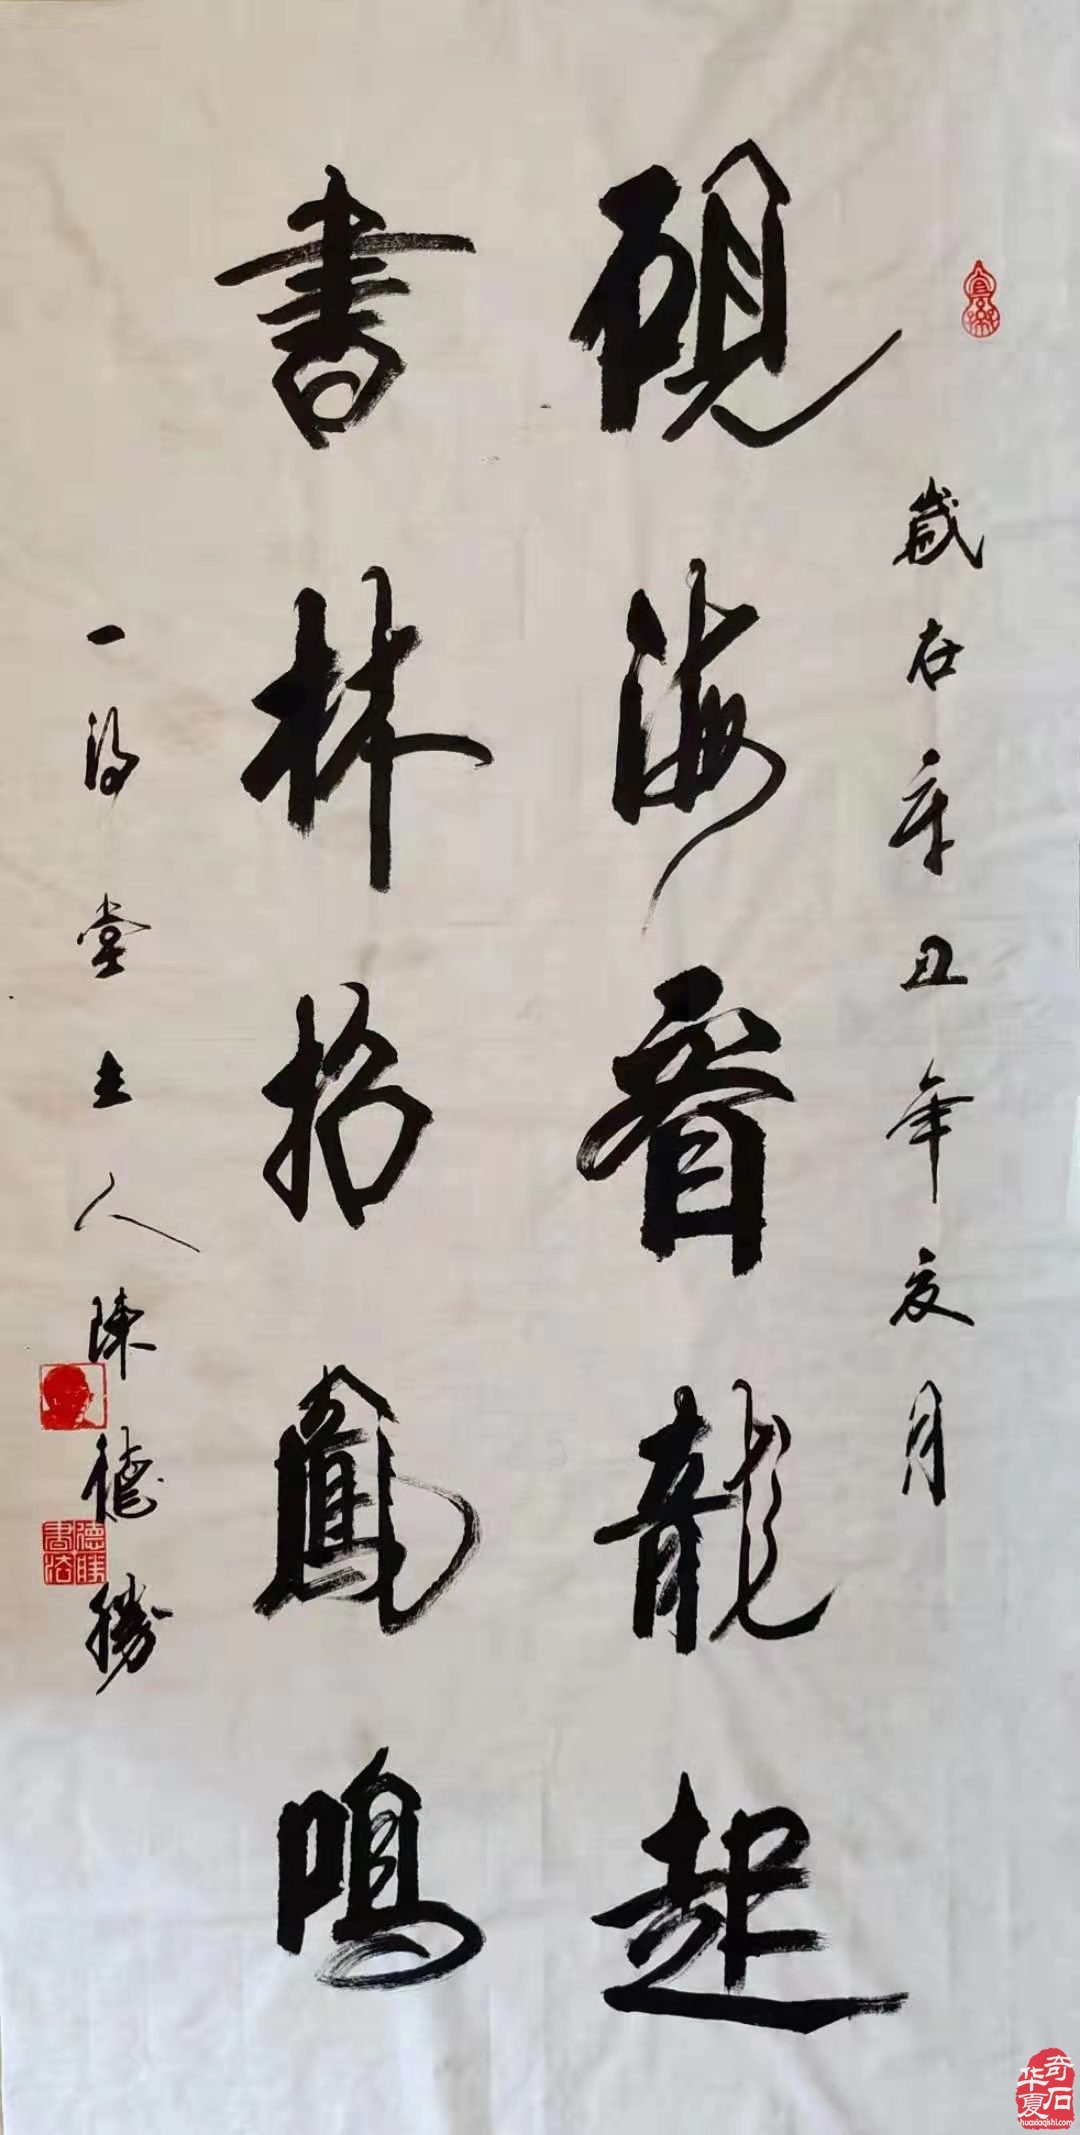 歲在辛丑年夏月
硯海看龍起
書林招鳳鳴
一得堂主人陳德勝
德胜書法
华夏奇石
huaxiaqishi.com